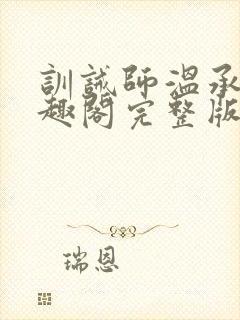 訓誡師溫承
趣閣完整版
瑞恩